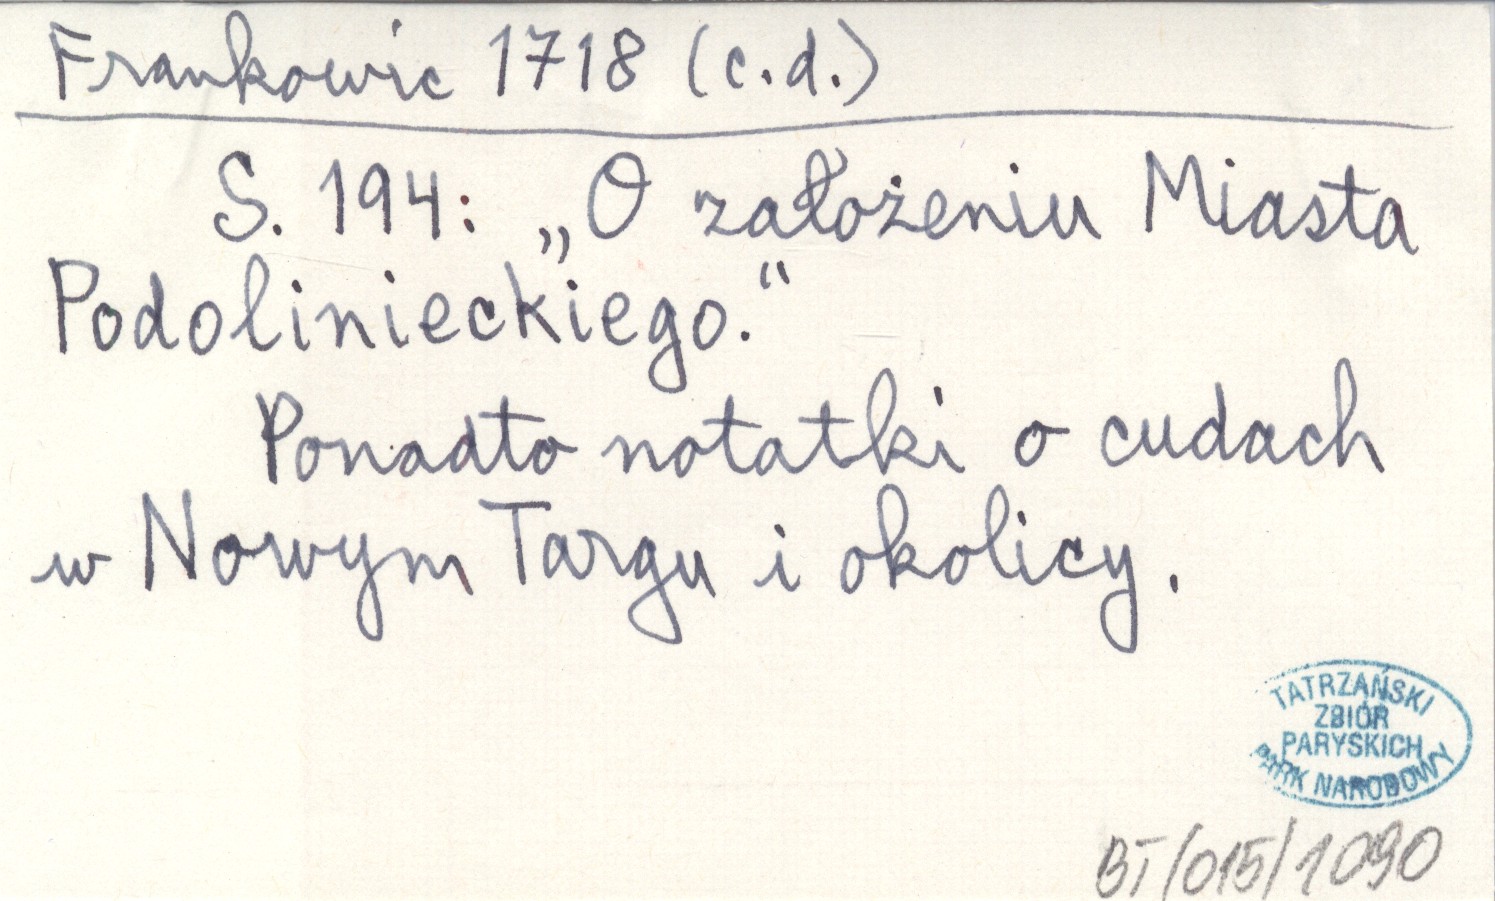 Frankowic 1718 (c.d.)
S. 194: „O założeniu Miasta
Podolinieckiego.“
Ponadto notatki o cudach
w Nowym Targu i okolicy.
TATRZAŃSKI
ZBIÓR
PARYSKICH
PARK NARODOWY
BT/015/1090